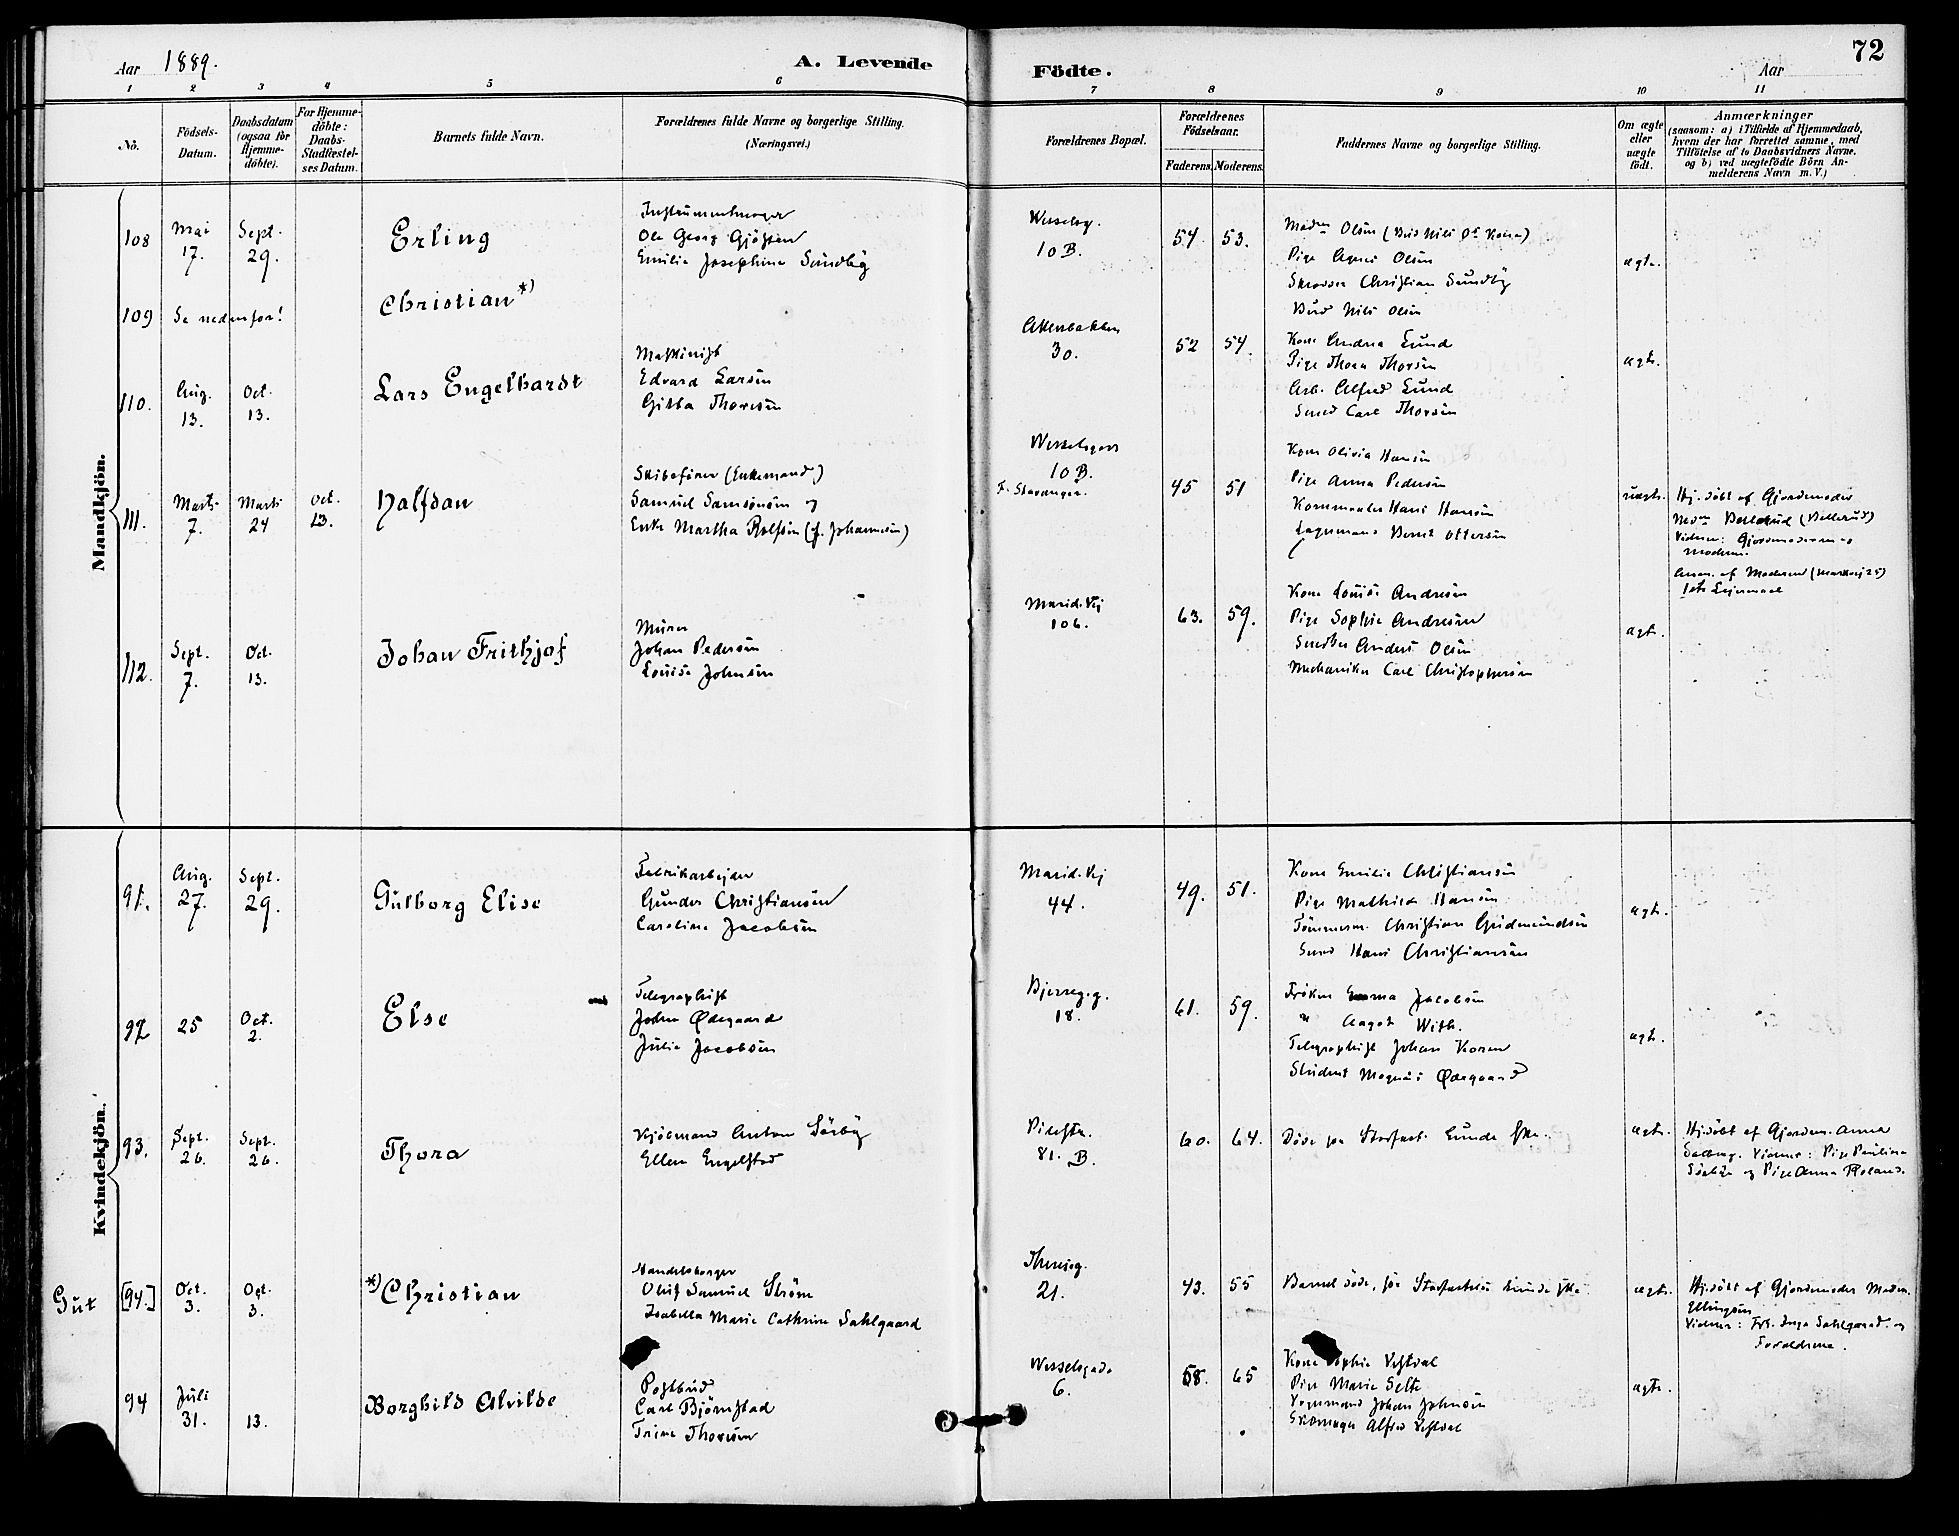 72
Aar 1889.
A. Levende
Födte.
Aar
1
2
3
4
5
6
7
8
9
10
11
No.
Födsels-Datum.
Daabsdatum (ogsaa for Hjemme-döbte).
For Hjemme-döbte: Daabs-Stadfæstel-ses Datum.
Barnets fulde Navn.
Forældrenes fulde Navne og borgerlige Stilling.
(Næringsvei.)
Forældrenes Bopæl.
Forældrenes Födselsaar.
Faderens.
Moderens.
Faddernes Navne og borgerlige Stilling.
Om ægte eller uægte födt.
Anmærkninger
(saasom: a) i Tilfælde af Hjemmedaab,
hvem der har forrettet samme, med
Tilföielse af to Daabsvidners Navne.
og b) ved uægtefödte Börn An-
melderens Navn m. V.)
Mandkjön.
108
Mai
17.
Sept.
29.
Erling
Instrumentmager
Ole Georg Gjösten
Emilie Josephine Sundby
Wesselsg.
10 B.
54
53.
Madm Olsen (Bud Nils Os Kone)
Pige Agnes Olsen
Christian Sundby
Bud Nils Olsen
ægte.
109
Se nedenfor!
Christian *)
110.
Aug.
13.
Oct.
13.
Lars Engelhardt
Maskinist
Edvard Larsen
Gitta Thoresen
Akersbakken
30.
52
54.
Kone Andrea Lund
Pige Thora Thorsen
Arb. Alfred Lund
Smed Carl Thorsen
ægte.
111.
Marts
7.
Marts
24
Oct.
13.
Halfdan
Skibsförer (Enkemand)
Samuel Samsonsen og
Enke Martha Rolfsen (f. Johannesen)
Wesselsgade
10 B.
F. Stavanger.
45
51
Kone Olivia Hansen
Pige Anna Pedersen
Hans Hansen
Bernt Ottersen
uægte.
Hj. döbt af Gjordemoder
Vidner: Gjordemoderen og
Moderen.
Anm. af Moderen
1ste Leiermaal
112.
Sept.
7.
Oct.
13.
Johan Frithjof
Murer
Johan Pedersen
Louise Johnsen
Marid. Vej
106.
63.
59.
Kone Louise Andresen
Pige Sophie Andresen
Snedker Anders Olsen
Mechaniker Carl Christophersen
ægte.
Kvindekjön.
91.
Aug.
27.
Sept.
29.
Gulborg Elise
Fabrikarbejder
Gunder Christiansen
Caroline Jacobsen
Marid. Vej
44.
49.
51.
Kone Emilie Christiansen
Pige Mathilde Hansen
Tömmerm. Christian Gudmundsen
Smed Hans Christiansen
ægte.
92
25
Oct.
2.
Else
Telegraphist
John Ødegaard
Julie Jacobsen
Bjerreg. g.
18.
61.
59.
Fröken Emma Jacobsen
" Aagot With.
Telegraphist Johan Koren
Student Magnus Ødegaard
ægte.
93.
Sept.
26.
Sept.
26.
Thora
Kjöbmand Anton Sörby
Ellen Engelstad
Pilestr.
81. B.
60.
64.
Döde för Stadfæst. kunde ske.
ægte.
Hj.döbt af Gjordem. Anna
Vidner: Pige Pauline
Sörby og Pige Anna Roland.
Gut
[94.]
Oct.
3.
Oct.
3.
*) Christian
Handelsborger
Oluf Samuel Ström
Isabella Marie Cathrine Dahlgaard
Theresesg.
21.
43.
55
Barnet döde, för Stadfæstelse kunde ske.
ægte.
Hj.döbt af Gjordemoder Madm.
Ellingsen
Vidner: Frk. Inga Dahlgaard og
Forældrene.
94
Juli
31.
13.
Borghild Alvilde
Postbud
Carl Björnstad
Trine Thoresen
Wesselsgade
6.
58.
65
Kone Sophie Vestdal
Pige Marie
Vognmand Johan Johnsen
Skomager Alfred Vestdal
ægte.